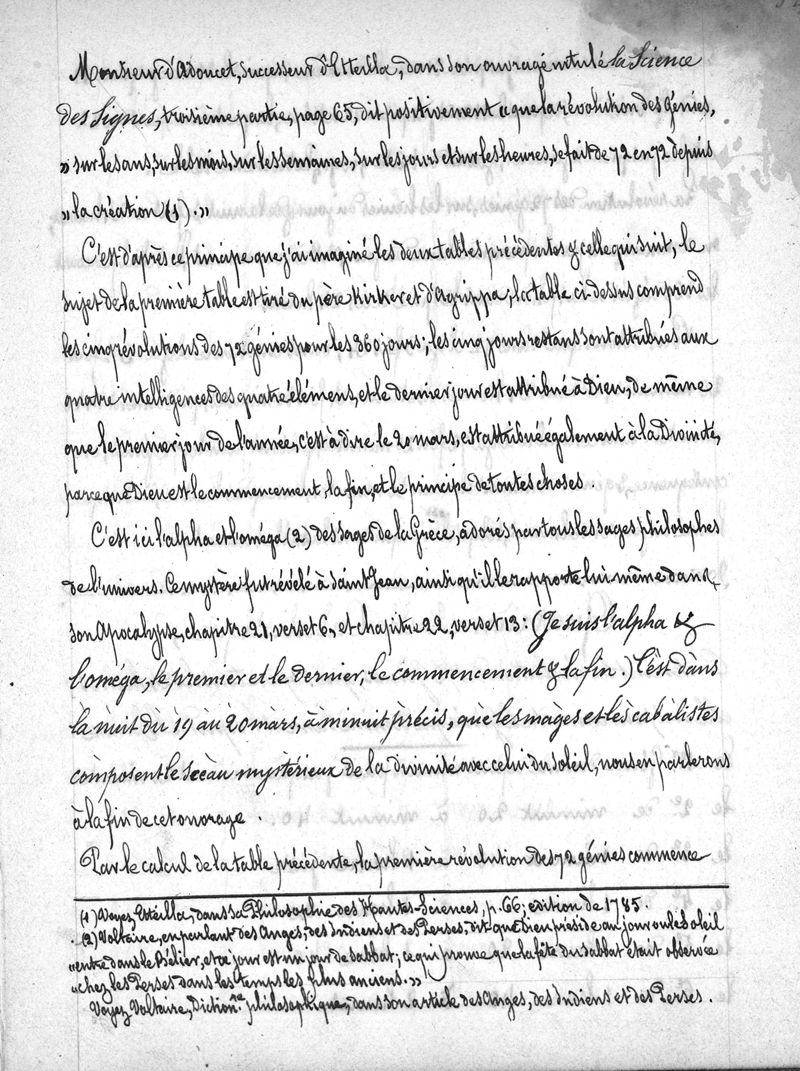 Monsieur d'Adoucet, successeur d'Etteilla, dans son ouvrage intitulé la Science
des Signes, troisième partie, page 65, dit positivement « que la révolution des génies,
» sur les ans, sur les mois, sur les semaines, sur les jours et sur les heures, se fait de 72 en 72 depuis
» la création (1). »
C'est d'après ce principe que j'ai imaginé les deux tables précédentes & celle qui suit, le
sujet de la première table est tiré du père Kirker et d'Agrippa, la table ci-dessus comprend
les cinq révolutions des 72 génies pour les 360 jours; les cinq jours restans sont attribués aux
quatre intelligences des quatre élémens, et le dernier jour est attribué à Dieu, de même
que le premier jour de l'année, c'est à dire le 20 mars, est attribué également à la Divinité,
parce que Dieu est le commencement, la fin, et le principe de toutes choses.
C'est ici l'alpha et l'oméga (2) des sages de la Grèce, adorés par tous les sages philosophes
de l'univers. Ce mystère fut révélé à Saint Jean, ainsi qu'il le rapporte lui même dans
son Apocalypse, chapitre 21, verset 6, et chapitre 22, verset 13: (Je suis l'alpha &
l'oméga, le premier et le dernier, le commencement & la fin.) C'est dans
la nuit du 19 au 20 mars, à minuit précis, que les mages et les cabalistes
composent le sceau mystérieux de la divinité avec celui du soleil, nous en parlerons
à la fin de cet ouvrage.
Par le calcul de la table précédente, la première révolution des 72 génies commence
(1) Voyez Etteilla, dans sa Philosophie des Hautes-Sciences, p. 66; edition de 1785.
(2) Voltaire, en parlant des Anges, des Indiens et des Perses, dit que Dieu préside au jour où le Soleil
« entre dans le Bélier, et ce jour est un jour de Sabbat; ce qui prouve que la fête du Sabbat était observée
« chez les Perses dans les temps les plus anciens. »
Voyez Voltaire, Diction.re philosophique, dans son article des Anges, des Indiens et des Perses.